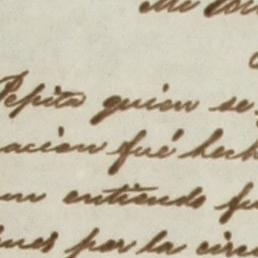 Mi
Pepita quien se
acion fué hech
un entiendo fu
ues por la circ